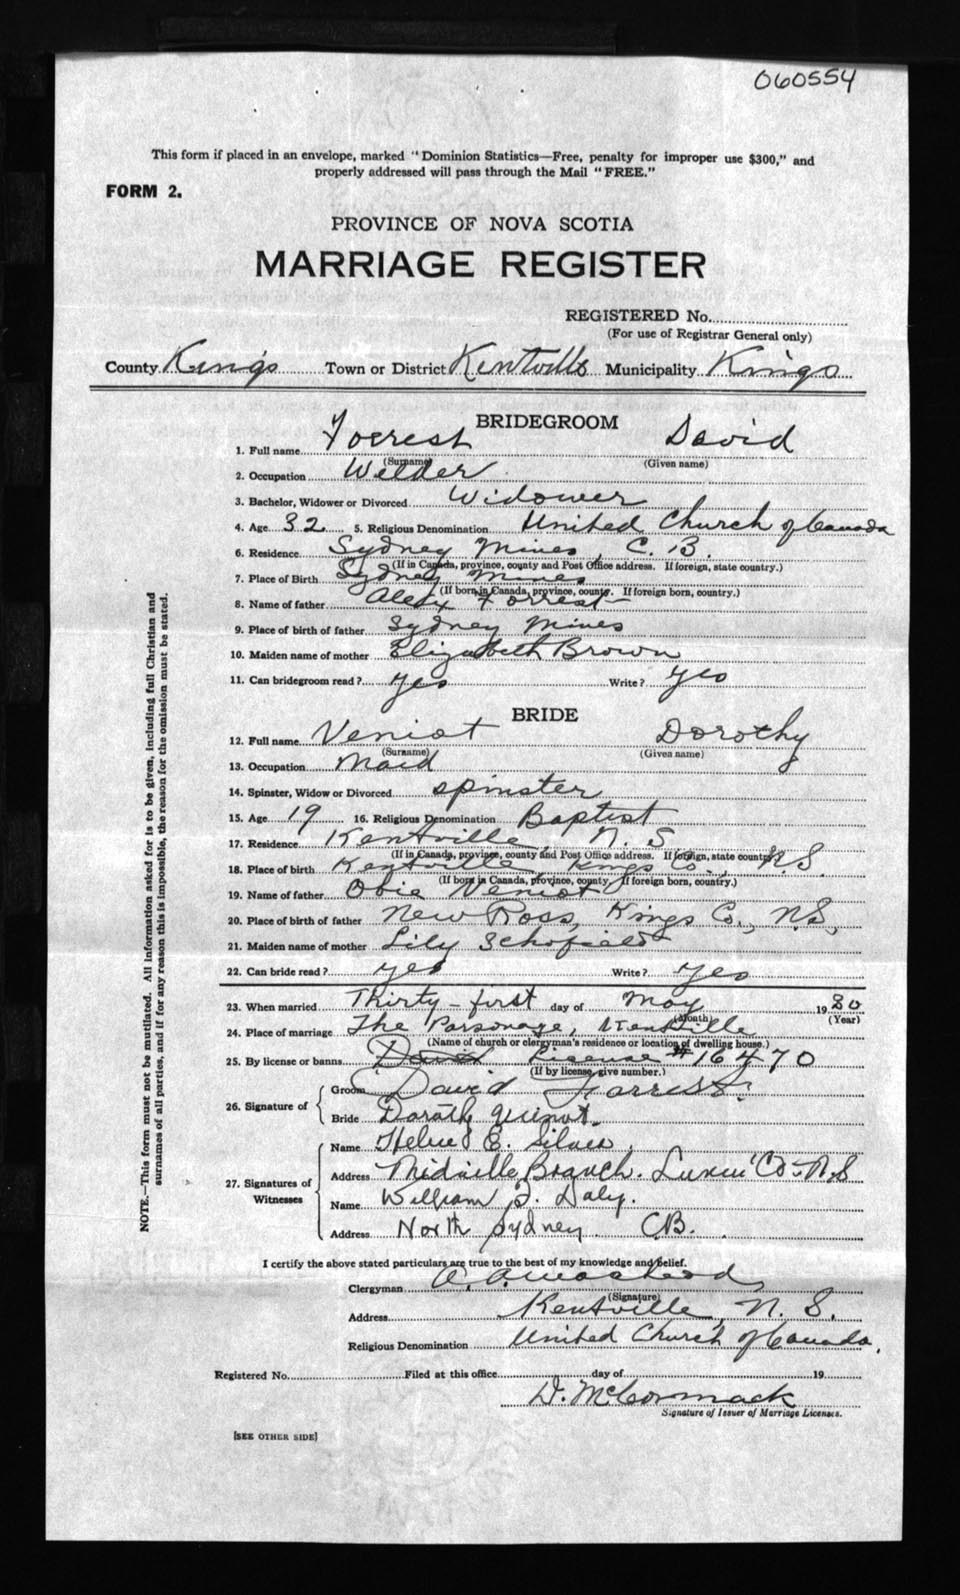 060554
This form if placed in an envelope, marked "Dominion Statistics—Free, penalty for improper use $300," and
properly addressed will pass through the Mail "FREE."
FORM 2.
PROVINCE OF NOVA SCOTIA
MARRIAGE REGISTER
REGISTERED No.
(For use of Registrar General only)
County King's Town or District Kentville Municipality Kings
BRIDEGROOM
1. Full name Forrest David
(Surname) (Given name)
2. Occupation Welder
3. Bachelor, Widower or Divorced Widower
4. Age 32 5. Religious Denomination United Church of Canada
6. Residence Sydney Mines, C. B.
(If in Canada, province, county and Post Office address. If foreign, state country.)
7. Place of Birth Sydney Mines
(If born in Canada, province, county. If foreign born, country.)
8. Name of father Alex Forrest
9. Place of birth of father Sydney Mines
10. Maiden name of mother Elizabeth Brown
11. Can bridegroom read? yes Write? yes
BRIDE
12. Full name Veniot Dorothy
(Surname) (Given name)
13. Occupation Maid
14. Spinster, Widow or Divorced spinster
15. Age 19 16. Religious Denomination Baptist
17. Residence Kentville, N. S
(If in Canada, province, county and Post Office address. If foreign, state country.)
18. Place of birth Kentville, Kings Co., N.S.
(If born in Canada, province, county. If foreign born, country.)
19. Name of father Obie Veniot
20. Place of birth of father New Ross, Kings Co., N.S.,
21. Maiden name of mother Lily Schofield
22. Can bride read? yes Write? yes
23. When married Thirty-first day of May 1930
(Month) (Year)
24. Place of marriage The Parsonage, Kentville
(Name of church or clergyman's residence or location of dwelling house.)
25. By license or banns License #16470
(If by license, give number.)
26. Signature of
Groom David Forrest.
Bride
27. Signatures of Witnesses
Name E.
Address Branch. Co. N.S
Name William J. Daly.
Address North Sydney C.B.
I certify the above stated particulars are true to the best of my knowledge and belief.
Clergyman
(Signature)
Address Kentville, N. S.
Religious Denomination United Church of Canada.
Registered No. Filed at this office day of 19
D. McCormack
Signature of Issuer of Marriage Licenses.
[SEE OTHER SIDE]
NOTE.—This form must not be mutilated. All information asked for is to be given, including full Christian and
surnames of all parties, and if for any reason this is impossible, the reason for the omission must be stated.